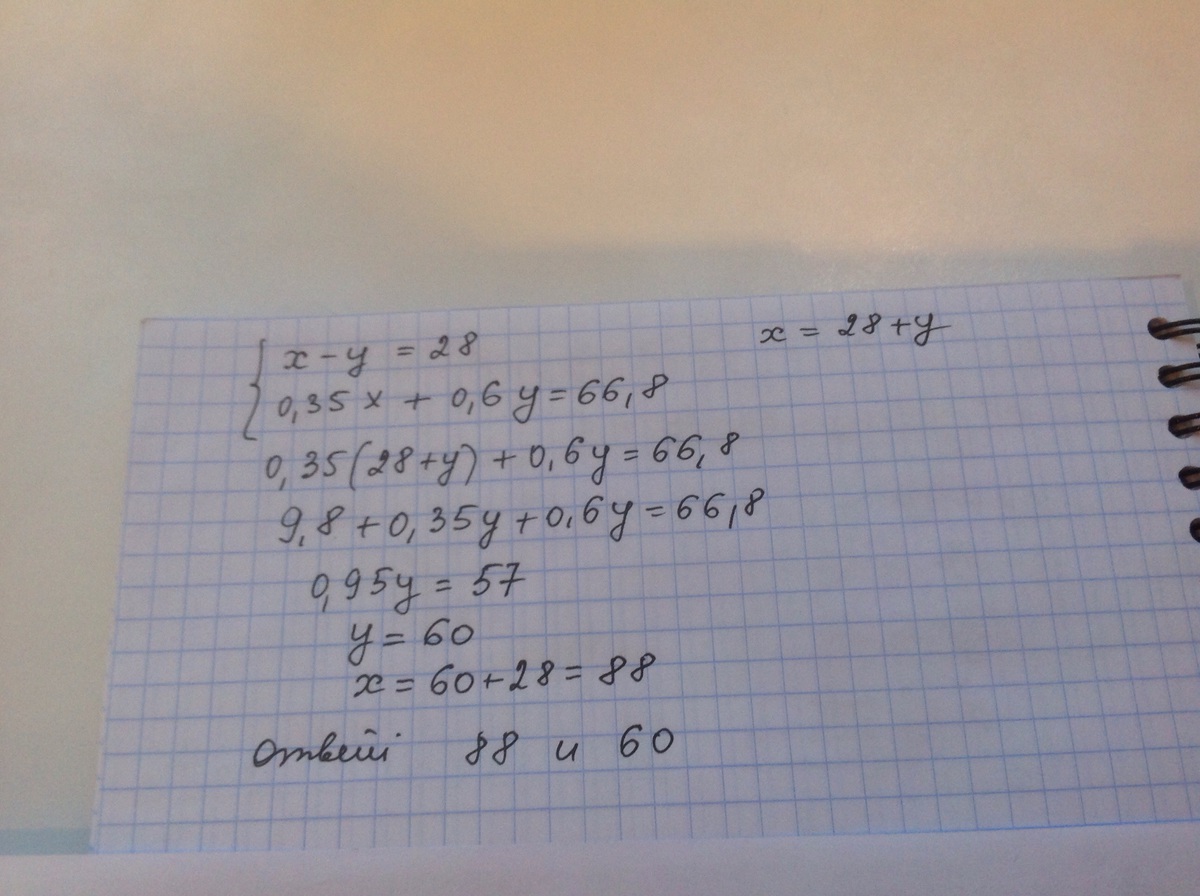 x - y = 28
x = 28 + y
0,35 x + 0,6 y = 66,8
0,35(28+y) + 0,6y = 66,8
9,8 + 0,35y + 0,6y = 66,8
0,95y = 57
y = 60
x = 60 + 28 = 88
Ответ 88 и 60